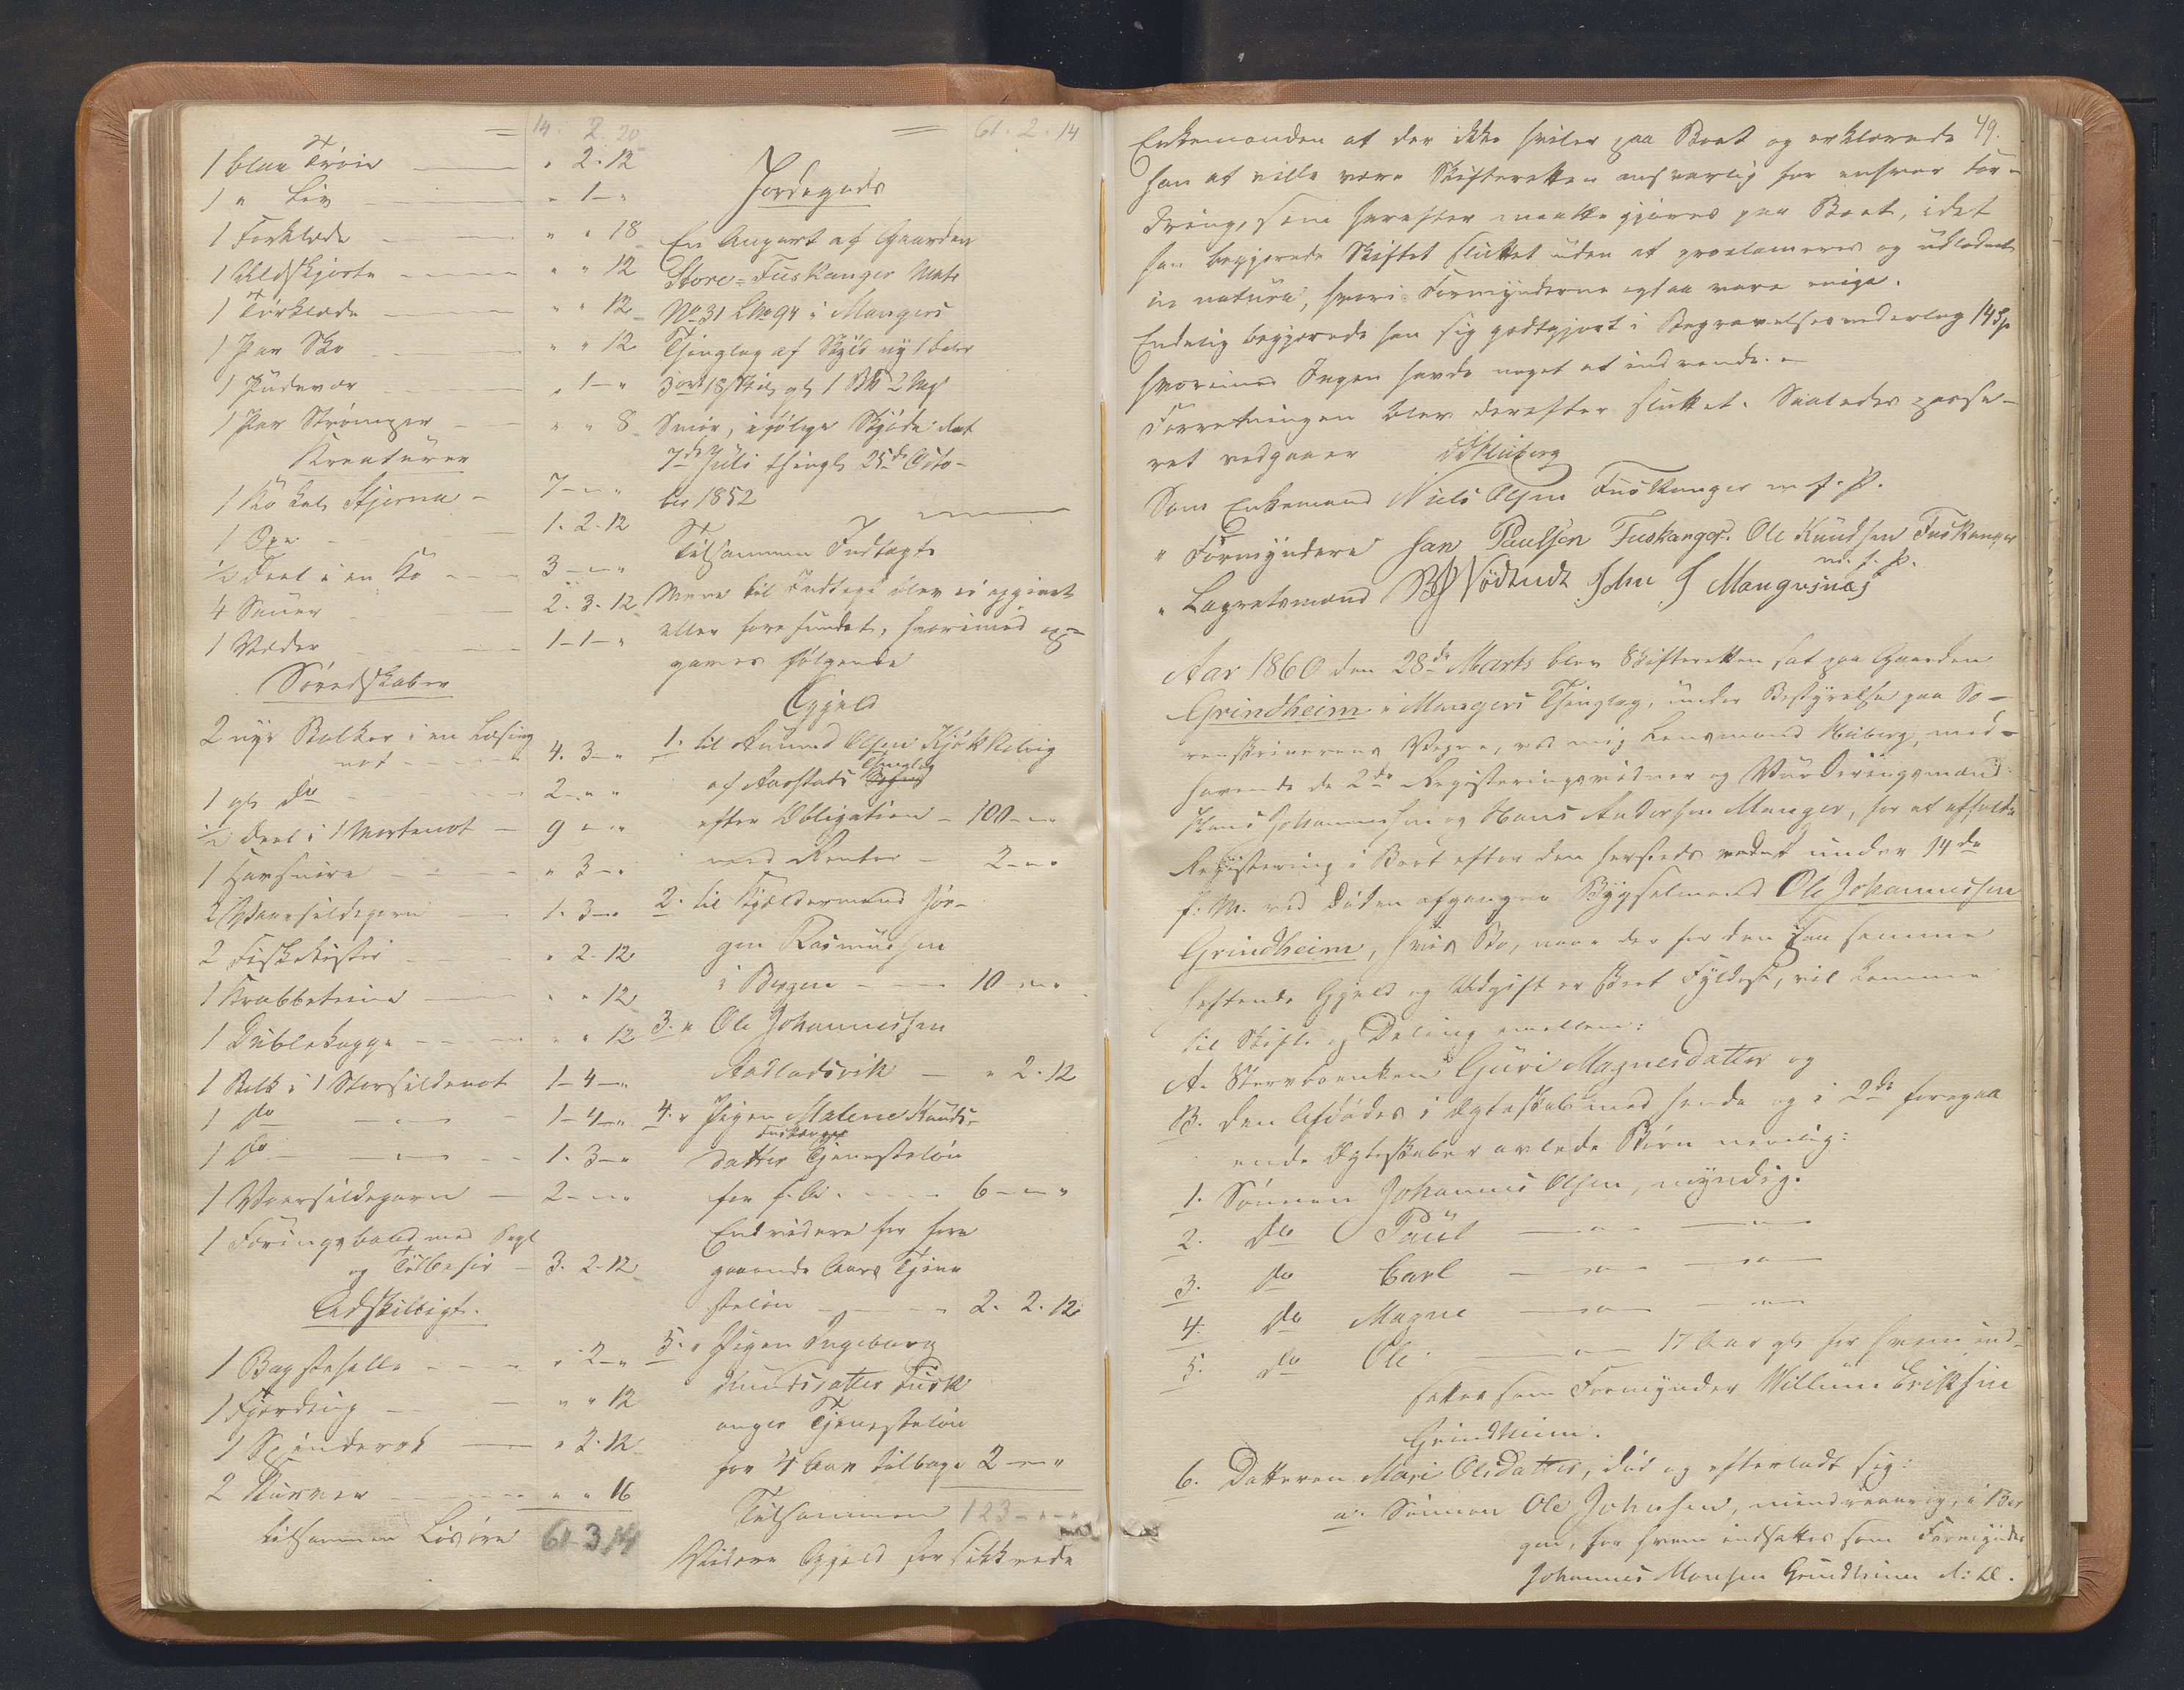 = 14. 2. 20
1 blaa Trøie — " 2. 12
1 " Liv — " 1 — "
1 Forklæde — " " 18
1 Uldskjorte — " " 12
1 Tørklæde — " " 12
1 Par Sko — " " 12
1 Pudevar — " 1 — "
1 Par Strømper — " " 8
Kreaturer
1 Ko kal Stjerna — 7 — " "
1 Oxe — 1. 2. 12
1/2 Deel i en Ko — 3 — " "
4 Sauer — 2. 3. 12
1 Væder — 1 — 1 — "
Søredskaber
2 nye Bolker i en Lasing
not — 4. 3 — "
1 gl Do — 2 — " "
1/2 Deel i 1 Mortenot — 9 " "
1 — " 3 — "
2 Vaarsildegarn — 1. 3 — "
2 Fiskekister — " 2. 12
1 Krabbeteine — " " 12
1 Dublekagge — " " 12
1 Bolk i 1 Storsildenot 1 — 4 — "
1 Do — " — 1 — 4 — "
1 Do — " — 1. 3 — "
1 Vaarsildegarn — 2 — " "
1 Føringsbaad med Segl
og Tilbehør — 3. 2. 12
Adskilligt.
1 Bagstehelle — " 2 — "
1 Fjerding — " " 12
1 Spinderok — " 2. 12
2 Kurver — " " 16
tilsammen Løsøre 61 3 14
= 61. 2. 14
Jordegods
En Anpart af Gaarden
Store=Fuskanger Matr
No 31 LNo 94 i Mangers
Thinglag af Skyld ny 1 Daler
3 ort 18 Skil, gl 1 2 Mrk
Smør, ifølge Skjøde dat
7de Juli thingl 25de Octo-
ber 1852
Tilsammen Indtægt
Mere til Indtægt blev ei opgivet
eller forefundet, hvorimod op-
gaves følgende
Gjeld
1. til Amund Olsen
af Aarstads Thinglag
efter Obligation — 100 — " "
med Renter — 2 — " "
2. til Kjældermand Jør-
gen Rasmussen
i Bergen — 10 — " "
3. " Ole Johannessen
Aadlandsvik — " 2. 12
4. " Pigen Malene Knuds-
Fuskanger
datter Tjenesteløn
for f. A. — 6 — " "
Endvidere for fore
gaaende Aars Tjene
steløn — 2. 2. 12
5. " Pigen Ingeborg
Knudsdatter Fusk
anger Tjenesteløn
for 4 Aar tilbage 2 — " "
Tilsammen 123 — " "
Videre Gjeld forsikkrede
49.
Enkemanden at der ikke hviler paa Boet og erklærede
han at ville være Skifteretten ansvarlig for enhver For-
dring, som herefter maatte gjøres paa Boet, idet
han begjærede Skiftet sluttet uden at proclameres og udlodnet
in natura, hvori Formynderne ogsaa vare enige.
Endelig begjærede han sig godtgjort i Begravelsesvederlag 14 Sp
hvorimod Ingen havde noget at indvende. —
Forretningen blev derefter sluttet. Saaledes passe-
ret vedgaaer Heiberg
Som Enkemand Niels Olsen Fuskanger m. f. P.
" Formyndere Jan Paulsen Fuskanger. Ole Knudsen Fuskanger
m. f. P.
" Lagretsmænd John J Mangersnæs
Aar 1860 den 28de Marts blev Skifteretten sat paa Gaarden
Grindheim i Mangers Thinglag, under Bestyrelse paa So-
renskriverens Vegne, ved mig Lensmand Heiberg, med-
havende de 2de Registeringsvidner og Vurderingsmænd
Hans Johannessen og Hans Andersen Manger, for at afholde
Registering i Boet efter den hersteds under 14de
f. M. ved Døden afgangne Bygselmand Ole Johannessen
Grindheim, hvis Bo, naar der for den paa samme
heftende Gjeld og Udgift er skeet Fyldest, vil komme
til Skifte og Deling imellem:
A. Stervboenken Guri Magnesdatter og
B. den Afdødes i Ægteskab med hende og i 2de foregaa
ende Ægteskaber avlede Børn nemlig:
1. Sønnen Johannes Olsen, myndig.
2. Do Paul — " — — " —
3. Do Carl — " — — " —
4. Do Magne — " — — " —
5. Do Ole — " — 17 Aar gl for hvem ind-
sattes som Formynder Willum Eriksen
Grindheim.
6. Datteren Mari Olsdatter, død og efterladt sig:
a. Sønnen Ole Johnsen, mindreaarig, i Ber
gen, for hvem indsattes som Formynder
Johannes Monsen Grindheim